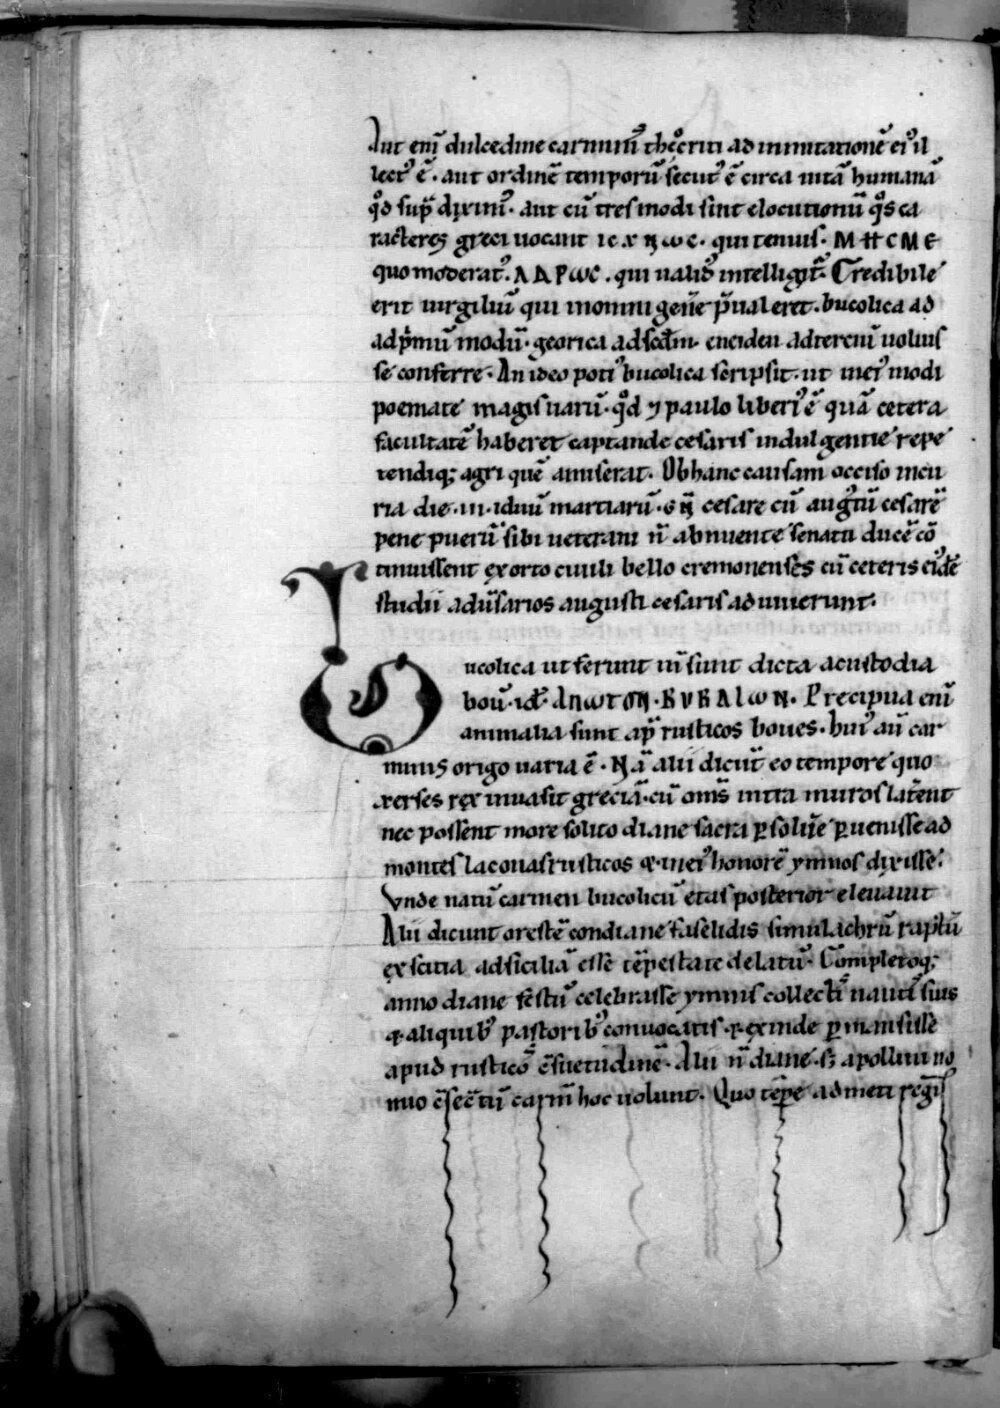 Aut eni̅ dulcedine carminu̅ theocriti ad inmitatione̅ ei᷒ il
lect᷒ e̅. aut ordine̅ temporu̅ secut᷒ e̅ circa uita̅ humana̅
qͦd sup̅ dixim᷒. aut cu̅ tres modi sint elocutionu̅ qͦs ca
racteres greci uocant ιcχνωc. qui tenuis. ΜΗCΜΕ
quo moderat᷒. ΑΔΡωC. qui ualid᷒ intelligit̃. Credibile
erit uirgiliu̅ qui in omni gen̅e p̅ualeret. bucolica ad
ad pͥmu̅ modu̅. georica ad scd̅m. eneiden ad terciu̅ uoluis
se conferre. An ideo poti᷒ bucolica scripsit. ut in ei᷒modi
poemate magis uaru̅. qͦd ⁊ paulo liberi᷒ e̅ qua̅ cetera
facultate̅ haberet captande cesaris indulgentie repe
tendiq; agri que̅ amiserat. Ob hanc causam occiso in cu
ria die .iii. iduu̅ martiaru̅ .G N̅ cesare cu̅ aug᷒tu̅ cesare̅
pene pueru̅ sibi ueterani n̅ abnuente senatu duce̅ co̅
tinuissent exorto ciuili bello cremonenses cu̅ ceteris ei᷒de̅
studii adu̅sarios augusti cesaris adiuuerunt.
Bucolica ut ferunt in̅ sunt dicta a custodia
bou̅ .id̅. ΑΠωΤΟΝ. ΒVΒΑΙωΝ. Precipua eni̅
animalia sunt ap̅ rusticos boues. hui᷒ au̅ car
minis origo uaria e̅. Na̅ alii dicu̅t eo tempore quo
xerses rex inuasit grecia̅. cu̅ om̅s intra muros late̅nt
nec possent more solito diane sacra p̱soli̅e p̱uenisse ad
montes laconas rusticos & in ei᷒ honore̅ ymnos dixisse.
Vnde natu̅ carmen bucolicu̅ etas posterior eleuauit
Alii dicunt oreste̅ con diane faselidis simulachru̅ raptu̅
ex scitia ad sicilia̅ esse te̅pestate delatu̅. Completoq;
anno diane festu̅ celebrasse ymnis collecti᷒ nauti᷒ suis
& aliquib᷒ pastorib᷒ conuocatis. & exinde p̱mansisse
apud rustico᷒ c̅suetudine̅. Alii n̅ diane. s; apollini no
mio c̅sec̅tu̅ carm̅ hoc uolunt. Quo te̅pe admeti regis